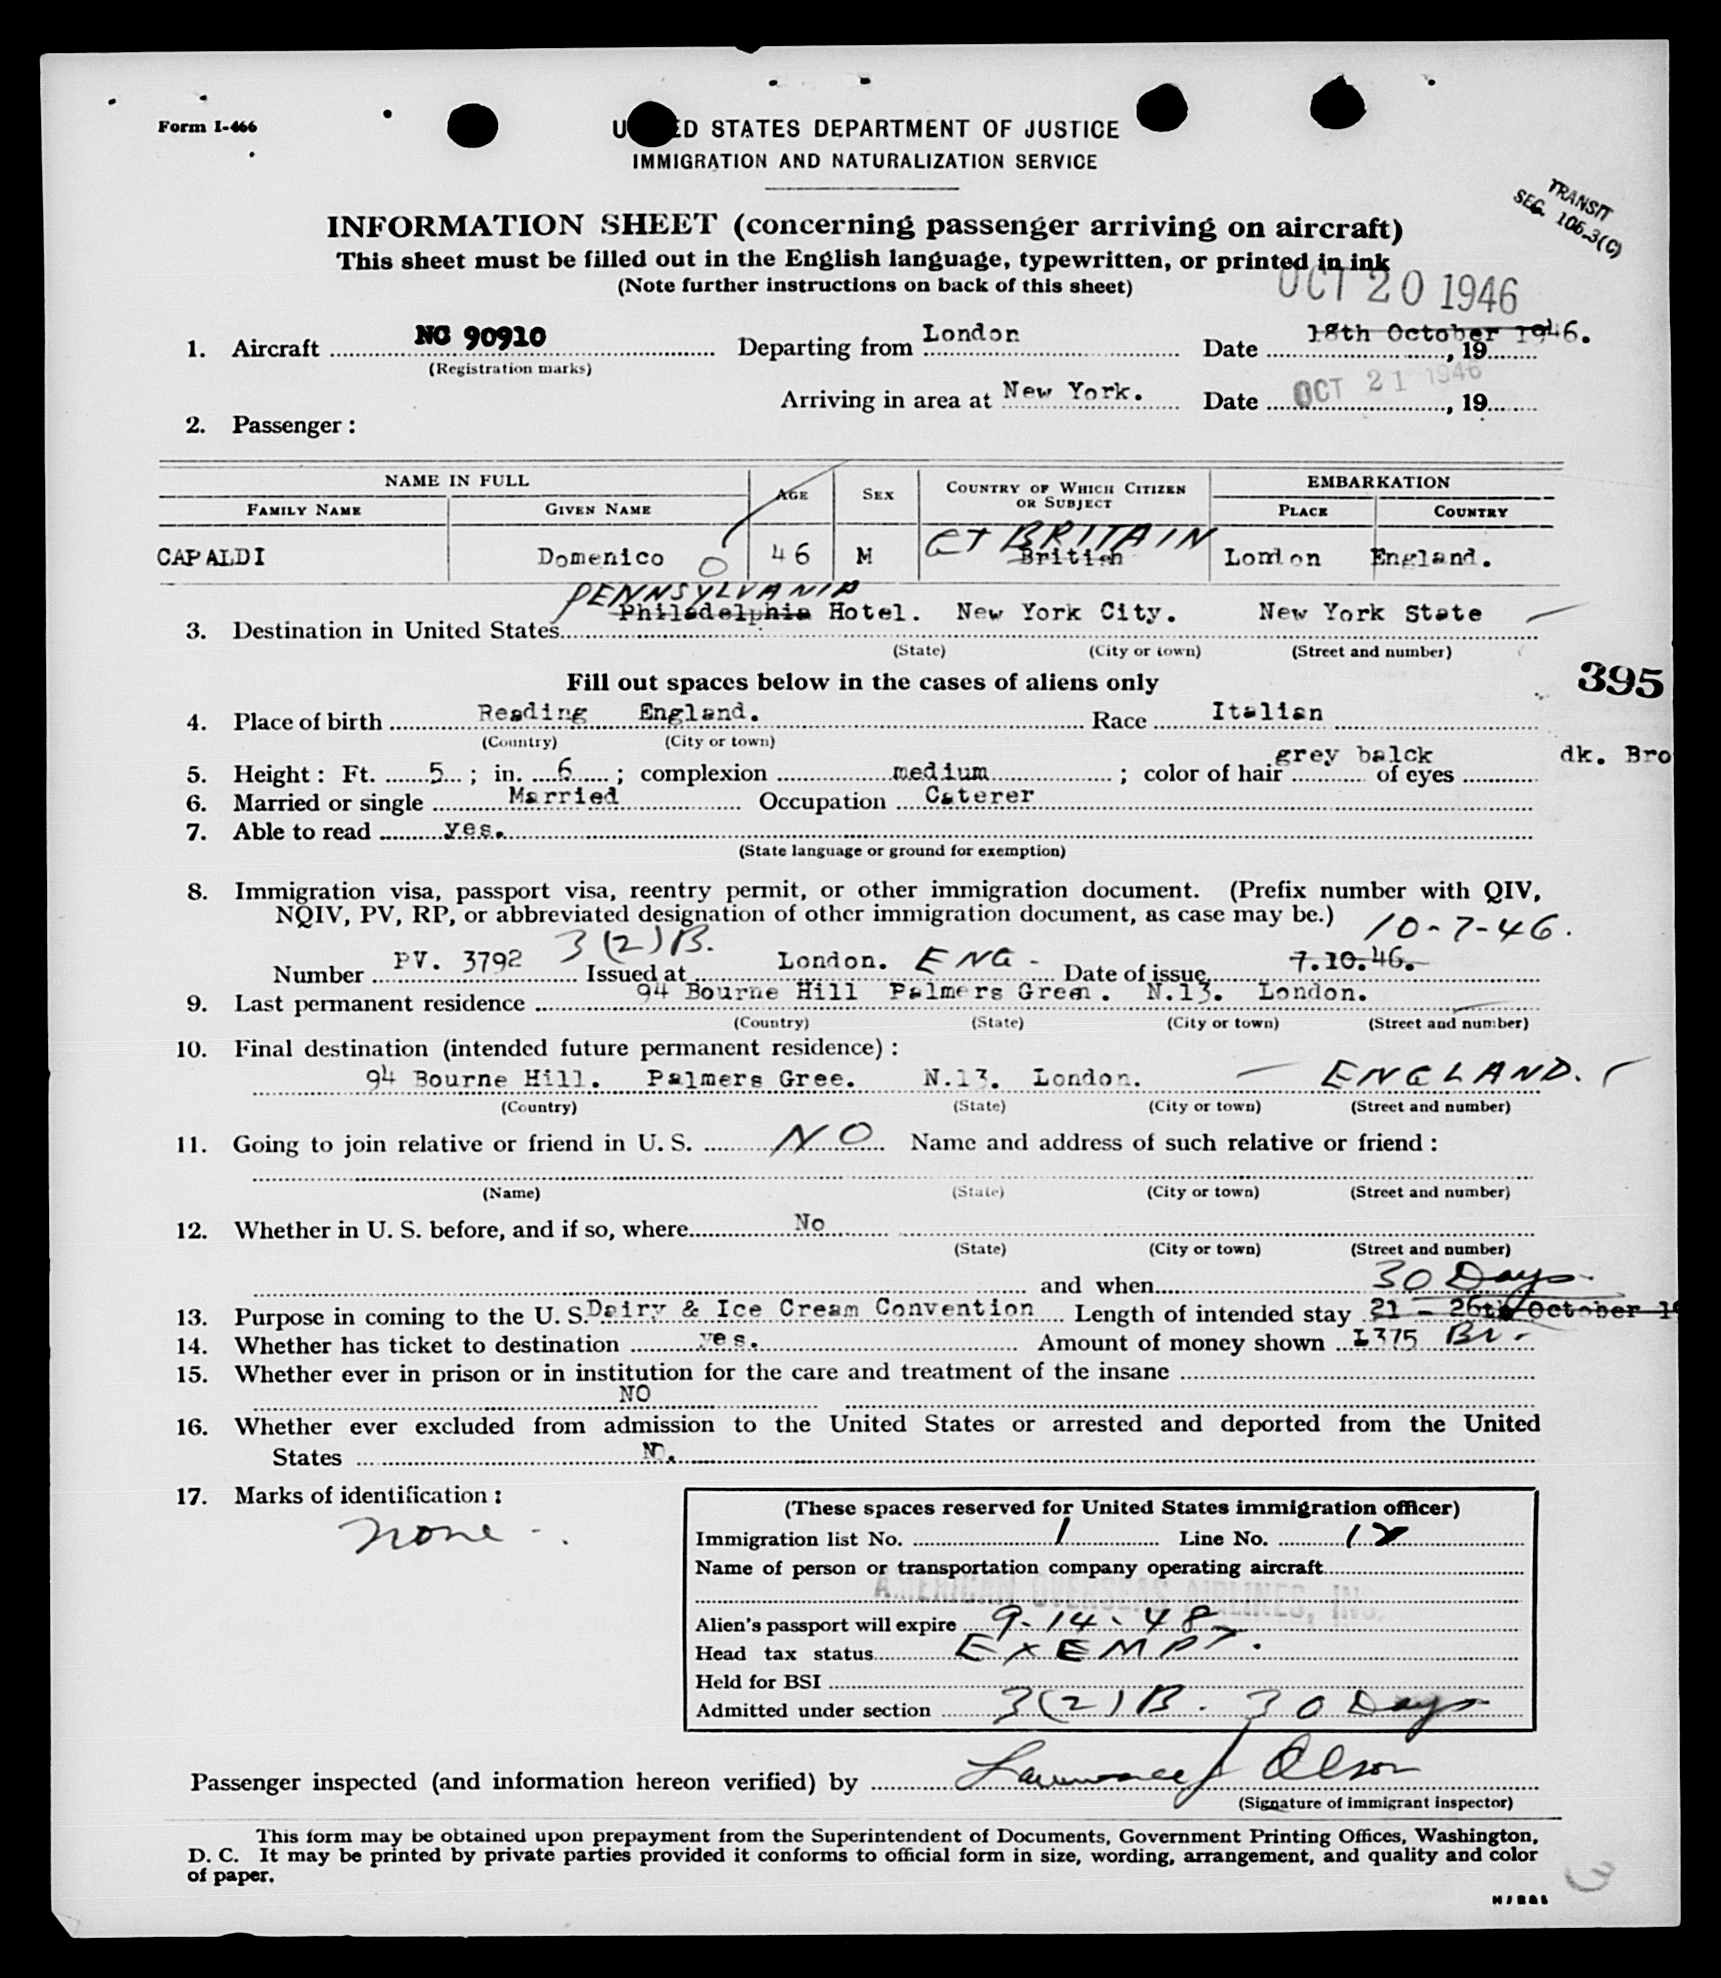 Form I-466
UNITED STATES DEPARTMENT OF JUSTICE
IMMIGRATION AND NATURALIZATION SERVICE
TRANSIT
SEC. 105.3(C)
INFORMATION SHEET (concerning passenger arriving on aircraft)
This sheet must be filled out in the English language, typewritten, or printed in ink
(Note further instructions on back of this sheet)
OCT 20 1946
1. Aircraft NC 90910 Departing from London Date 18th October 1946. , 19
(Registration marks)
Arriving in area at New York. Date OCT 21 1946 , 19
2. Passenger :
NAME IN FULL AGE SEX COUNTRY OF WHICH CITIZEN OR SUBJECT EMBARKATION
FAMILY NAME GIVEN NAME PLACE COUNTRY
GT BRITAIN
CAPALDI Domenico 46 M British London England.
PENNSYLVANIA
3. Destination in United States Philadelphia Hotel. New York City. New York State
(State) (City or town) (Street and number)
Fill out spaces below in the cases of aliens only
395
4. Place of birth Reading England. Race Italian
(Country) (City or town)
5. Height : Ft. 5 ; in. 6 ; complexion medium ; color of hair grey balck of eyes dk. Bro
6. Married or single Married Occupation Caterer
7. Able to read yes.
(State language or ground for exemption)
8. Immigration visa, passport visa, reentry permit, or other immigration document. (Prefix number with QIV,
NQIV, PV, RP, or abbreviated designation of other immigration document, as case may be.)
10-7-46.
Number PV. 3792 3(2)B. Issued at London. ENG- Date of issue 7.10.46.
9. Last permanent residence 94 Bourne Hill Palmers Green. N.13. London.
(Country) (State) (City or town) (Street and number)
10. Final destination (intended future permanent residence) :
94 Bourne Hill. Palmers Gree. N.13. London. — ENGLAND.
(Country) (State) (City or town) (Street and number)
11. Going to join relative or friend in U. S. NO Name and address of such relative or friend :
(Name) (State) (City or town) (Street and number)
12. Whether in U. S. before, and if so, where No
(State) (City or town) (Street and number)
and when 30 Days
13. Purpose in coming to the U. S. Dairy & Ice Cream Convention Length of intended stay 21 - 26th October 19
14. Whether has ticket to destination yes. Amount of money shown £375 Br.
15. Whether ever in prison or in institution for the care and treatment of the insane
NO
16. Whether ever excluded from admission to the United States or arrested and deported from the United
States
17. Marks of identification :
none - .
(These spaces reserved for United States immigration officer)
Immigration list No. 1 Line No.
Name of person or transportation company operating aircraft
AMERICAN OVERSEAS AIRLINES, INC.
Alien's passport will expire 9-14-48
Head tax status EXEMPT.
Held for BSI
Admitted under section 3(2)B. 30 Days
Passenger inspected (and information hereon verified) by Lawrence J Olson
(Signature of immigrant inspector)
This form may be obtained upon prepayment from the Superintendent of Documents, Government Printing Offices, Washington,
D. C. It may be printed by private parties provided it conforms to official form in size, wording, arrangement, and quality and color
of paper.
3